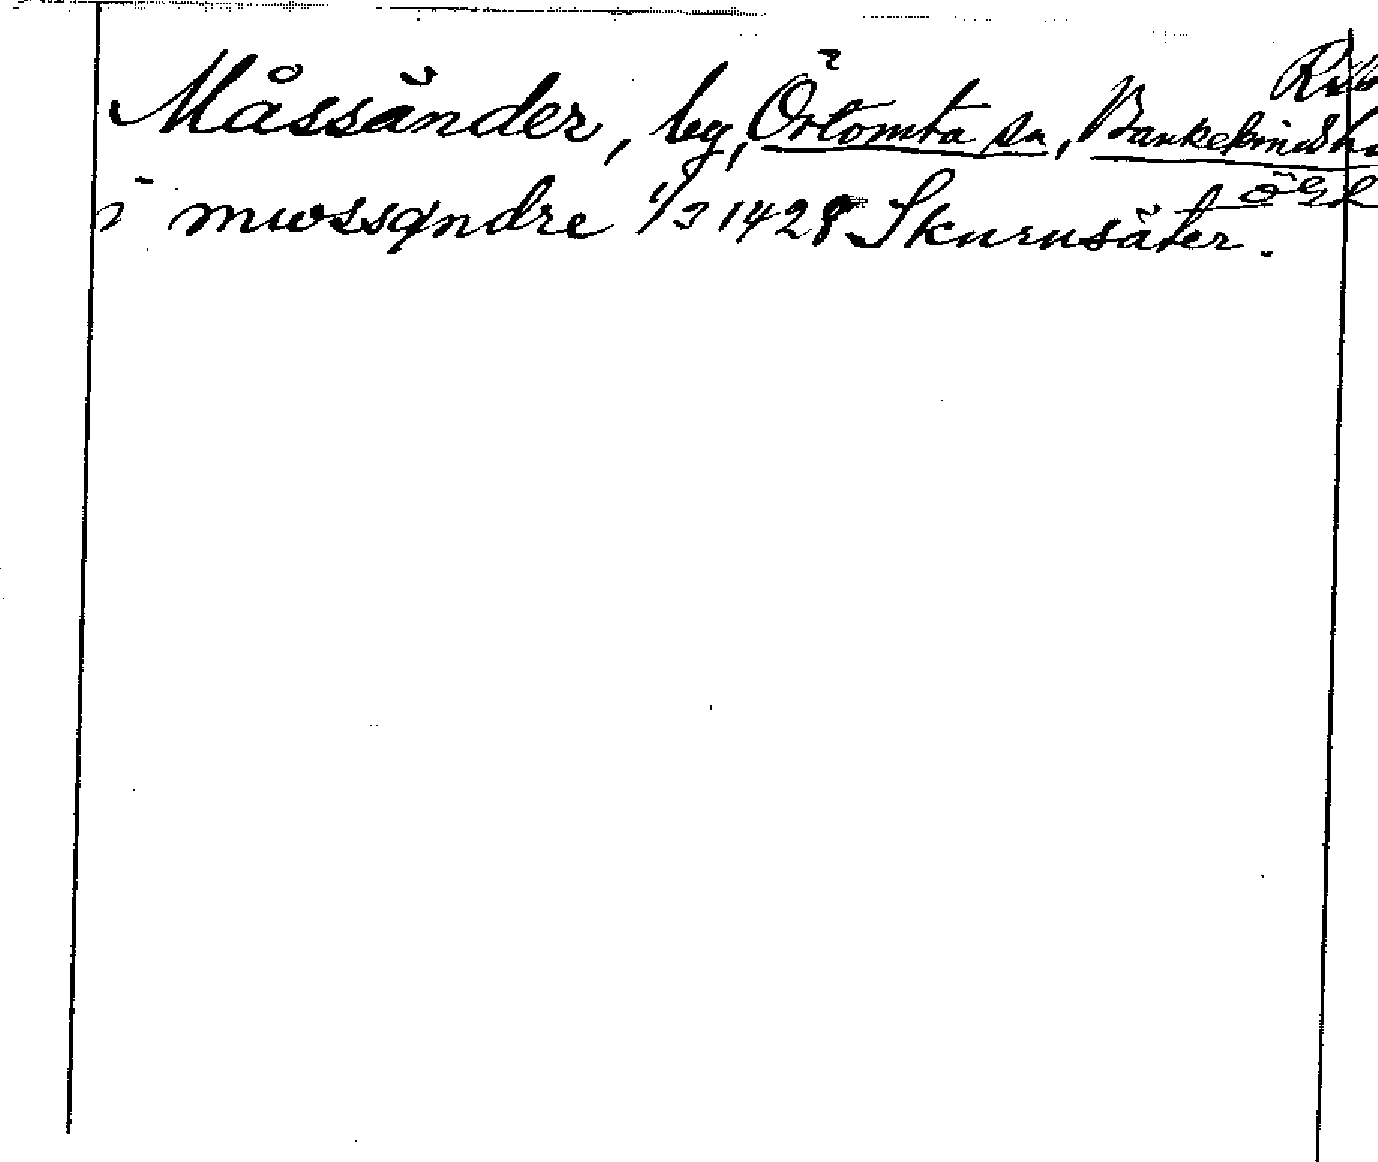 Måssänder, by, Örtomta sn, Bankekinds h
ÖGL
i mwssqndre 1/3 1428 Skurusäter.